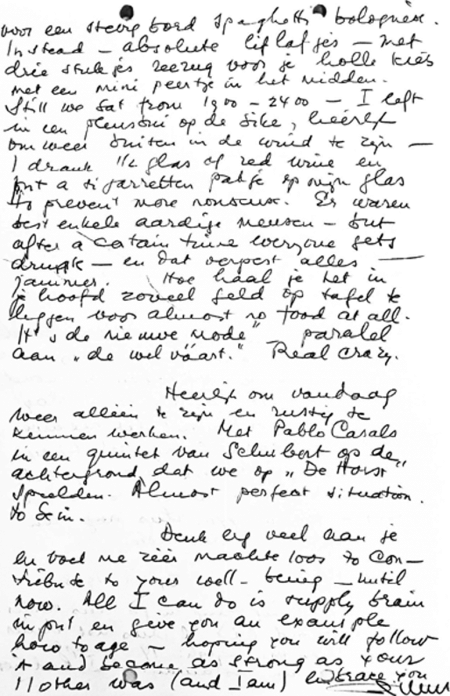 voor een stevig bord spaghetti bolognèse.
Instead – absolute liflafjes – met
drie stukjes zeezug voor je holle kies
met een mini peertje in het midden.
Still we sat from 1900 – 2400 – I left
in een plensbui op de bike, heerlijk
om weer buiten in de wind te zijn –
I drank 1½ glas of red wine en
put a sigarretten pakje op mijn glas
to prevent more nonsense. Er waren
best enkele aardige mensen – but
after a certain time everyone gets
drunk – en dat verpest alles –
jammer. Hoe haal je het in
je hoofd zoveel geld op tafel te
leggen voor almost no food at all.
It's de nieuwe mode" – paralel
aan „de welvaart." Real crazy.
Heerlijk om vandaag
weer alléén te zijn en rustig te
kunnen werken. Met Pablo Casals
in een quintet van Schubert op de
achtergrond, dat we op „De Horst"
speelden. Almost perfect situation.
to be in.
Denk erg veel aan je
en voel me zéér machteloos to con-
tribute to your well-being – until
now. All I can do is supply brain
input en give you an example
how to age – hoping you will follow
it and become as strong as your
Mother was (and I am) Embrace you